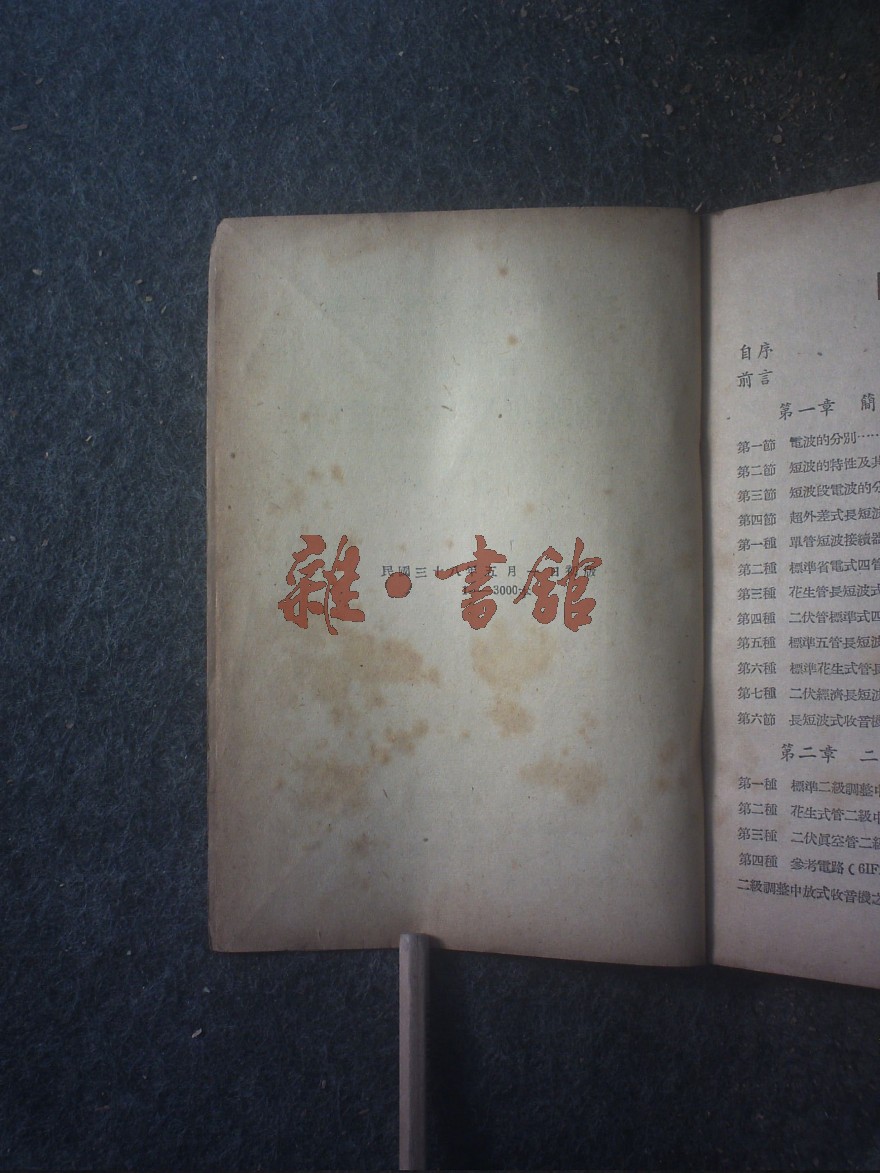 民國三十八年五月一日初版
3000
雜·書館
自序
前言
第一章 簡
第一節 電波的分別……
第二節 短波的特性及其
第三節 短波段電波的分
第四節 超外差式長短波
第一種 單管短波接續器
第二種 標準省電式四管
第三種 花生管長短波式
第四種 二伏管標準式四
第五種 標準五管長短波
第六種 標準花生式管長
第七種 二伏經濟長短波
第六節 長短波式收音機
第二章 二
第一種 標準二級調整中
第二種 花生式管二級中
第三種 二伏眞空管二級
第四種 參考電路(6IF
二級調整中放式收音機之